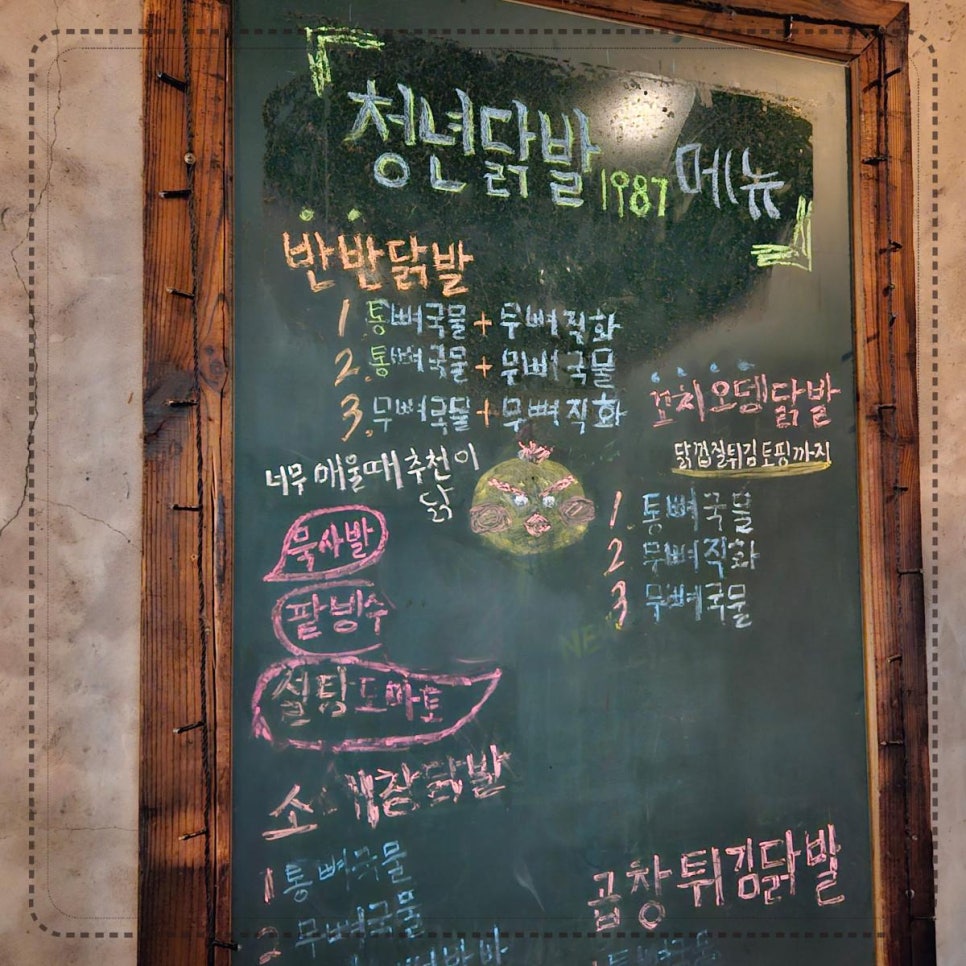 청년닭발 1987 메뉴
반반닭발
1 통뼈국물 + 무뼈직화
2. 통뼈국물 + 무뼈국물
3. 무뼈국물 + 무뼈직화
너무 매울때 추천이
닭
묵사발
팥빙수
설탕도마토
꼬치오뎅닭발
닭껍질튀김토핑까지
1 통뼈국물
2 무뼈직화
3 무뼈국물
NE
소 막창닭발
1 통뼈국물
2 무뼈국물
곱창튀김닭발